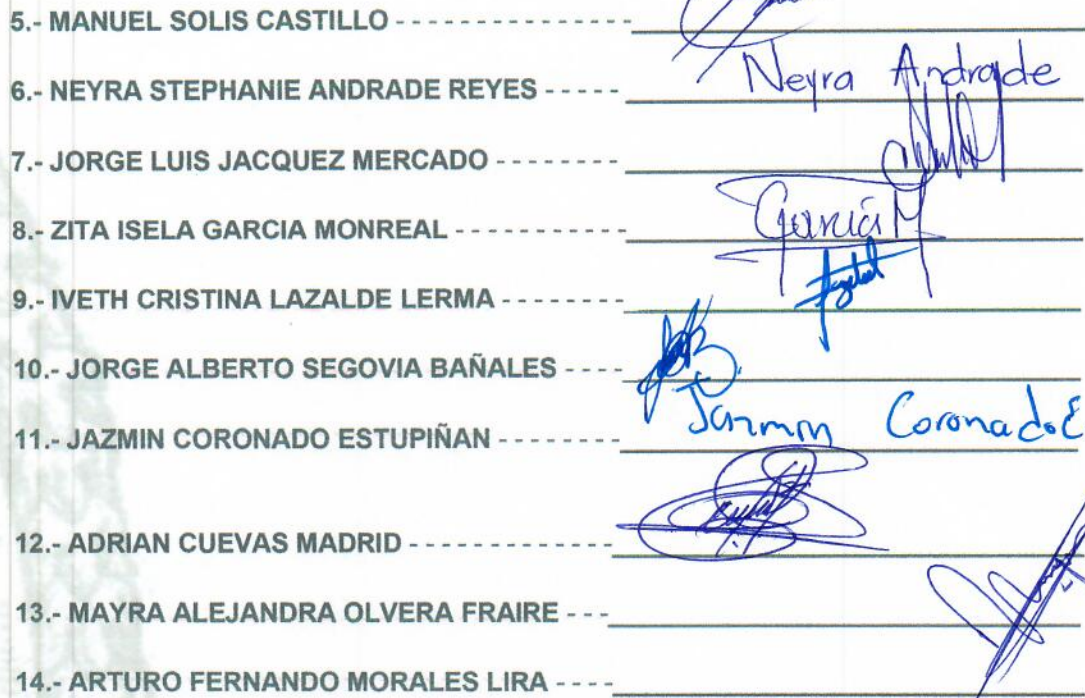 5.- MANUEL SOLIS CASTILLO - - - - - - - - - - - - - - -
6.- NEYRA STEPHANIE ANDRADE REYES - - - - - Neyra Andrade
7.- JORGE LUIS JACQUEZ MERCADO - - - - - - - -
8.- ZITA ISELA GARCIA MONREAL - - - - - - - - - - García M
9.- IVETH CRISTINA LAZALDE LERMA - - - - - - - -
10.- JORGE ALBERTO SEGOVIA BAÑALES - - - - -
11.- JAZMIN CORONADO ESTUPIÑAN - - - - - - - - Jazmin Coronado E
12.- ADRIAN CUEVAS MADRID - - - - - - - - - - - - -
13.- MAYRA ALEJANDRA OLVERA FRAIRE - - -
14.- ARTURO FERNANDO MORALES LIRA - - - -